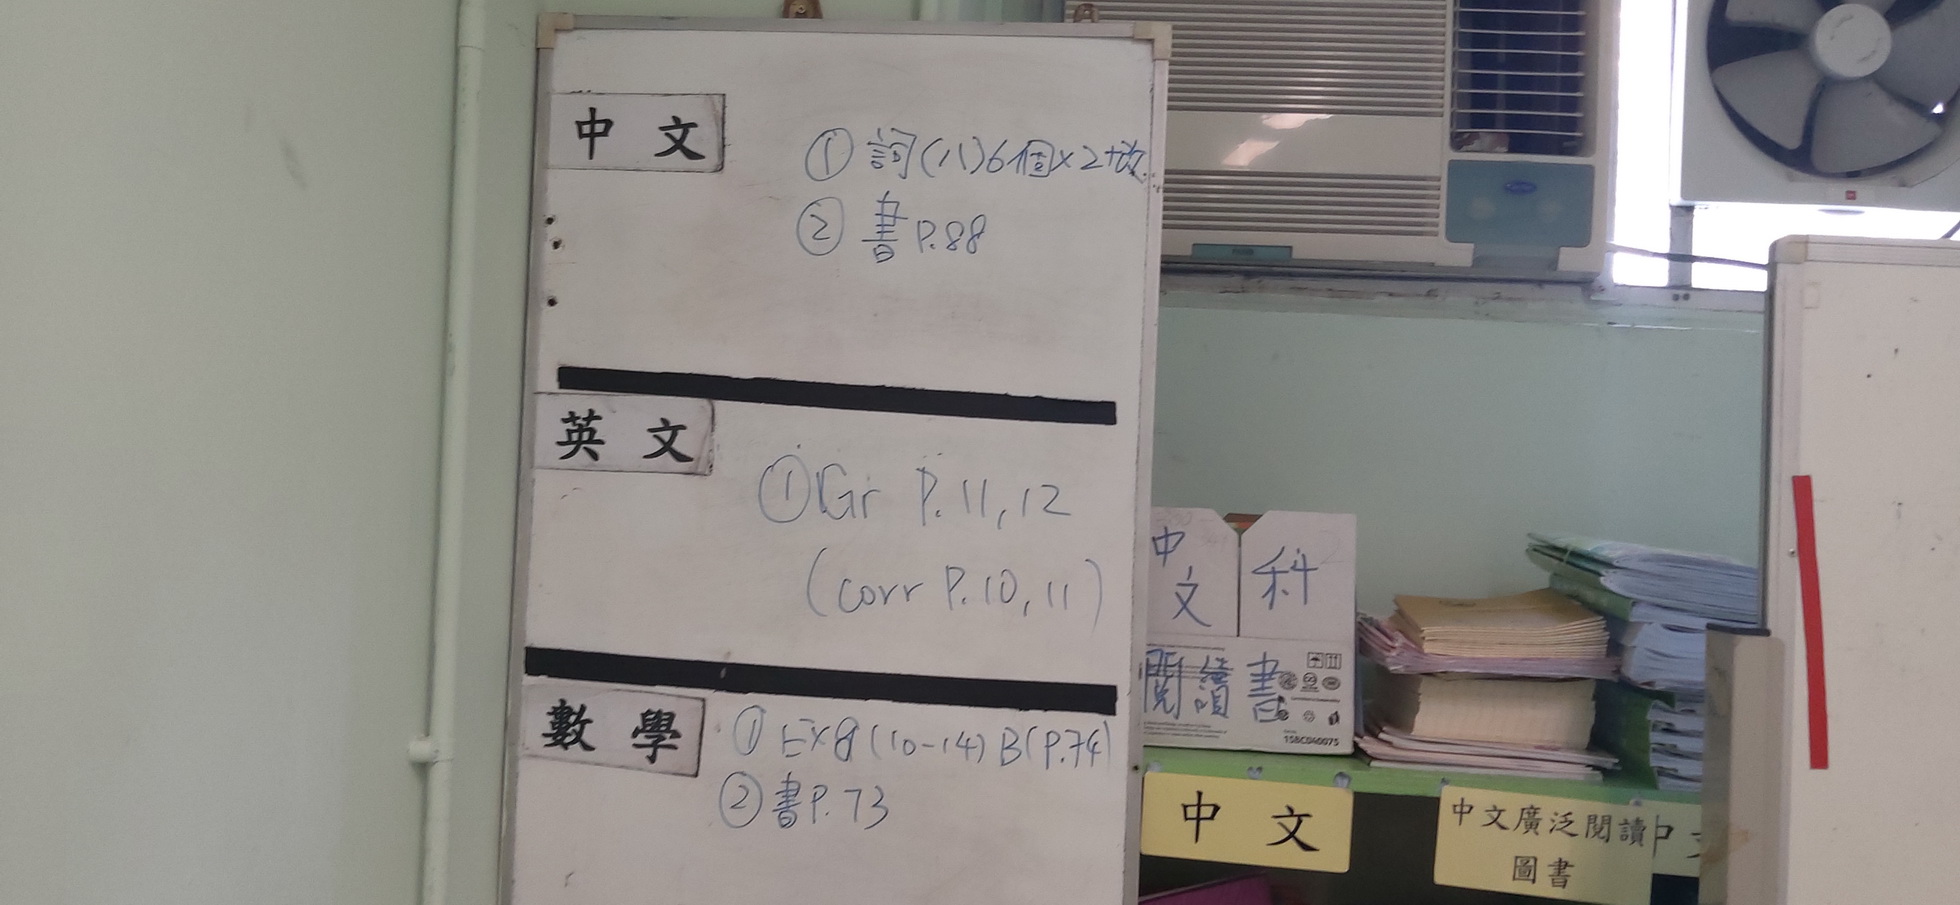 中文
① 詞(八)6個x2+改
② 書 P.88
英文
① Gr P.11,12
(corr P.10,11)
數學
① Ex8 (10-14) B(P.74)
② 書P.73
中文
科
閱讀書
15BC040075
中文
中文廣泛閱讀
圖書
中文